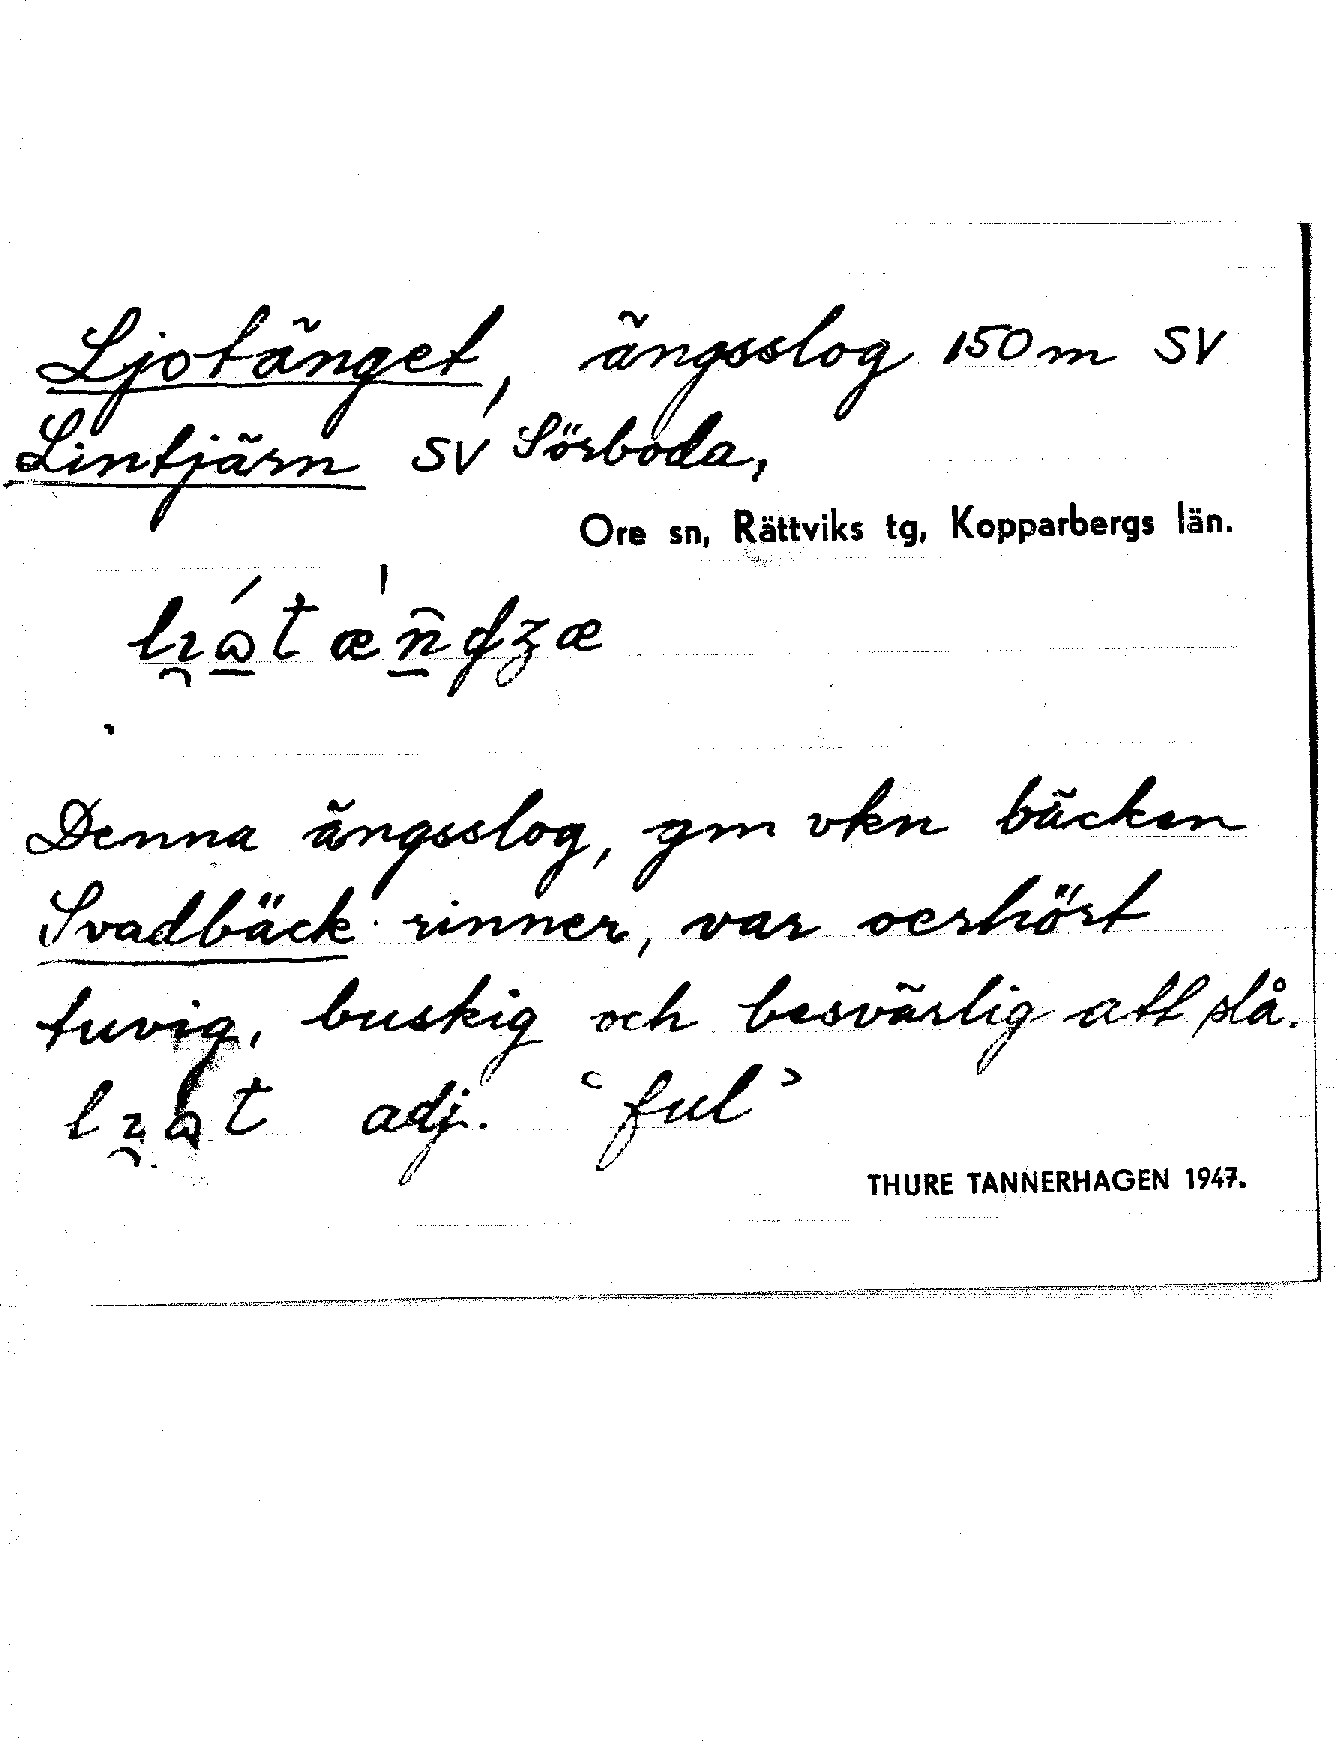 Ljotänget, ängsslog 150 m SV
Lintjärn SV Sörboda,
Ore sn, Rättviks tg, Kopparbergs län.
Denna ängsslog, gm vkn bäcken
Svadbäck rinner, var oerhört
tuvig, buskig och besvärlig att slå.
adj. 'ful'
THURE TANNERHAGEN 1947.